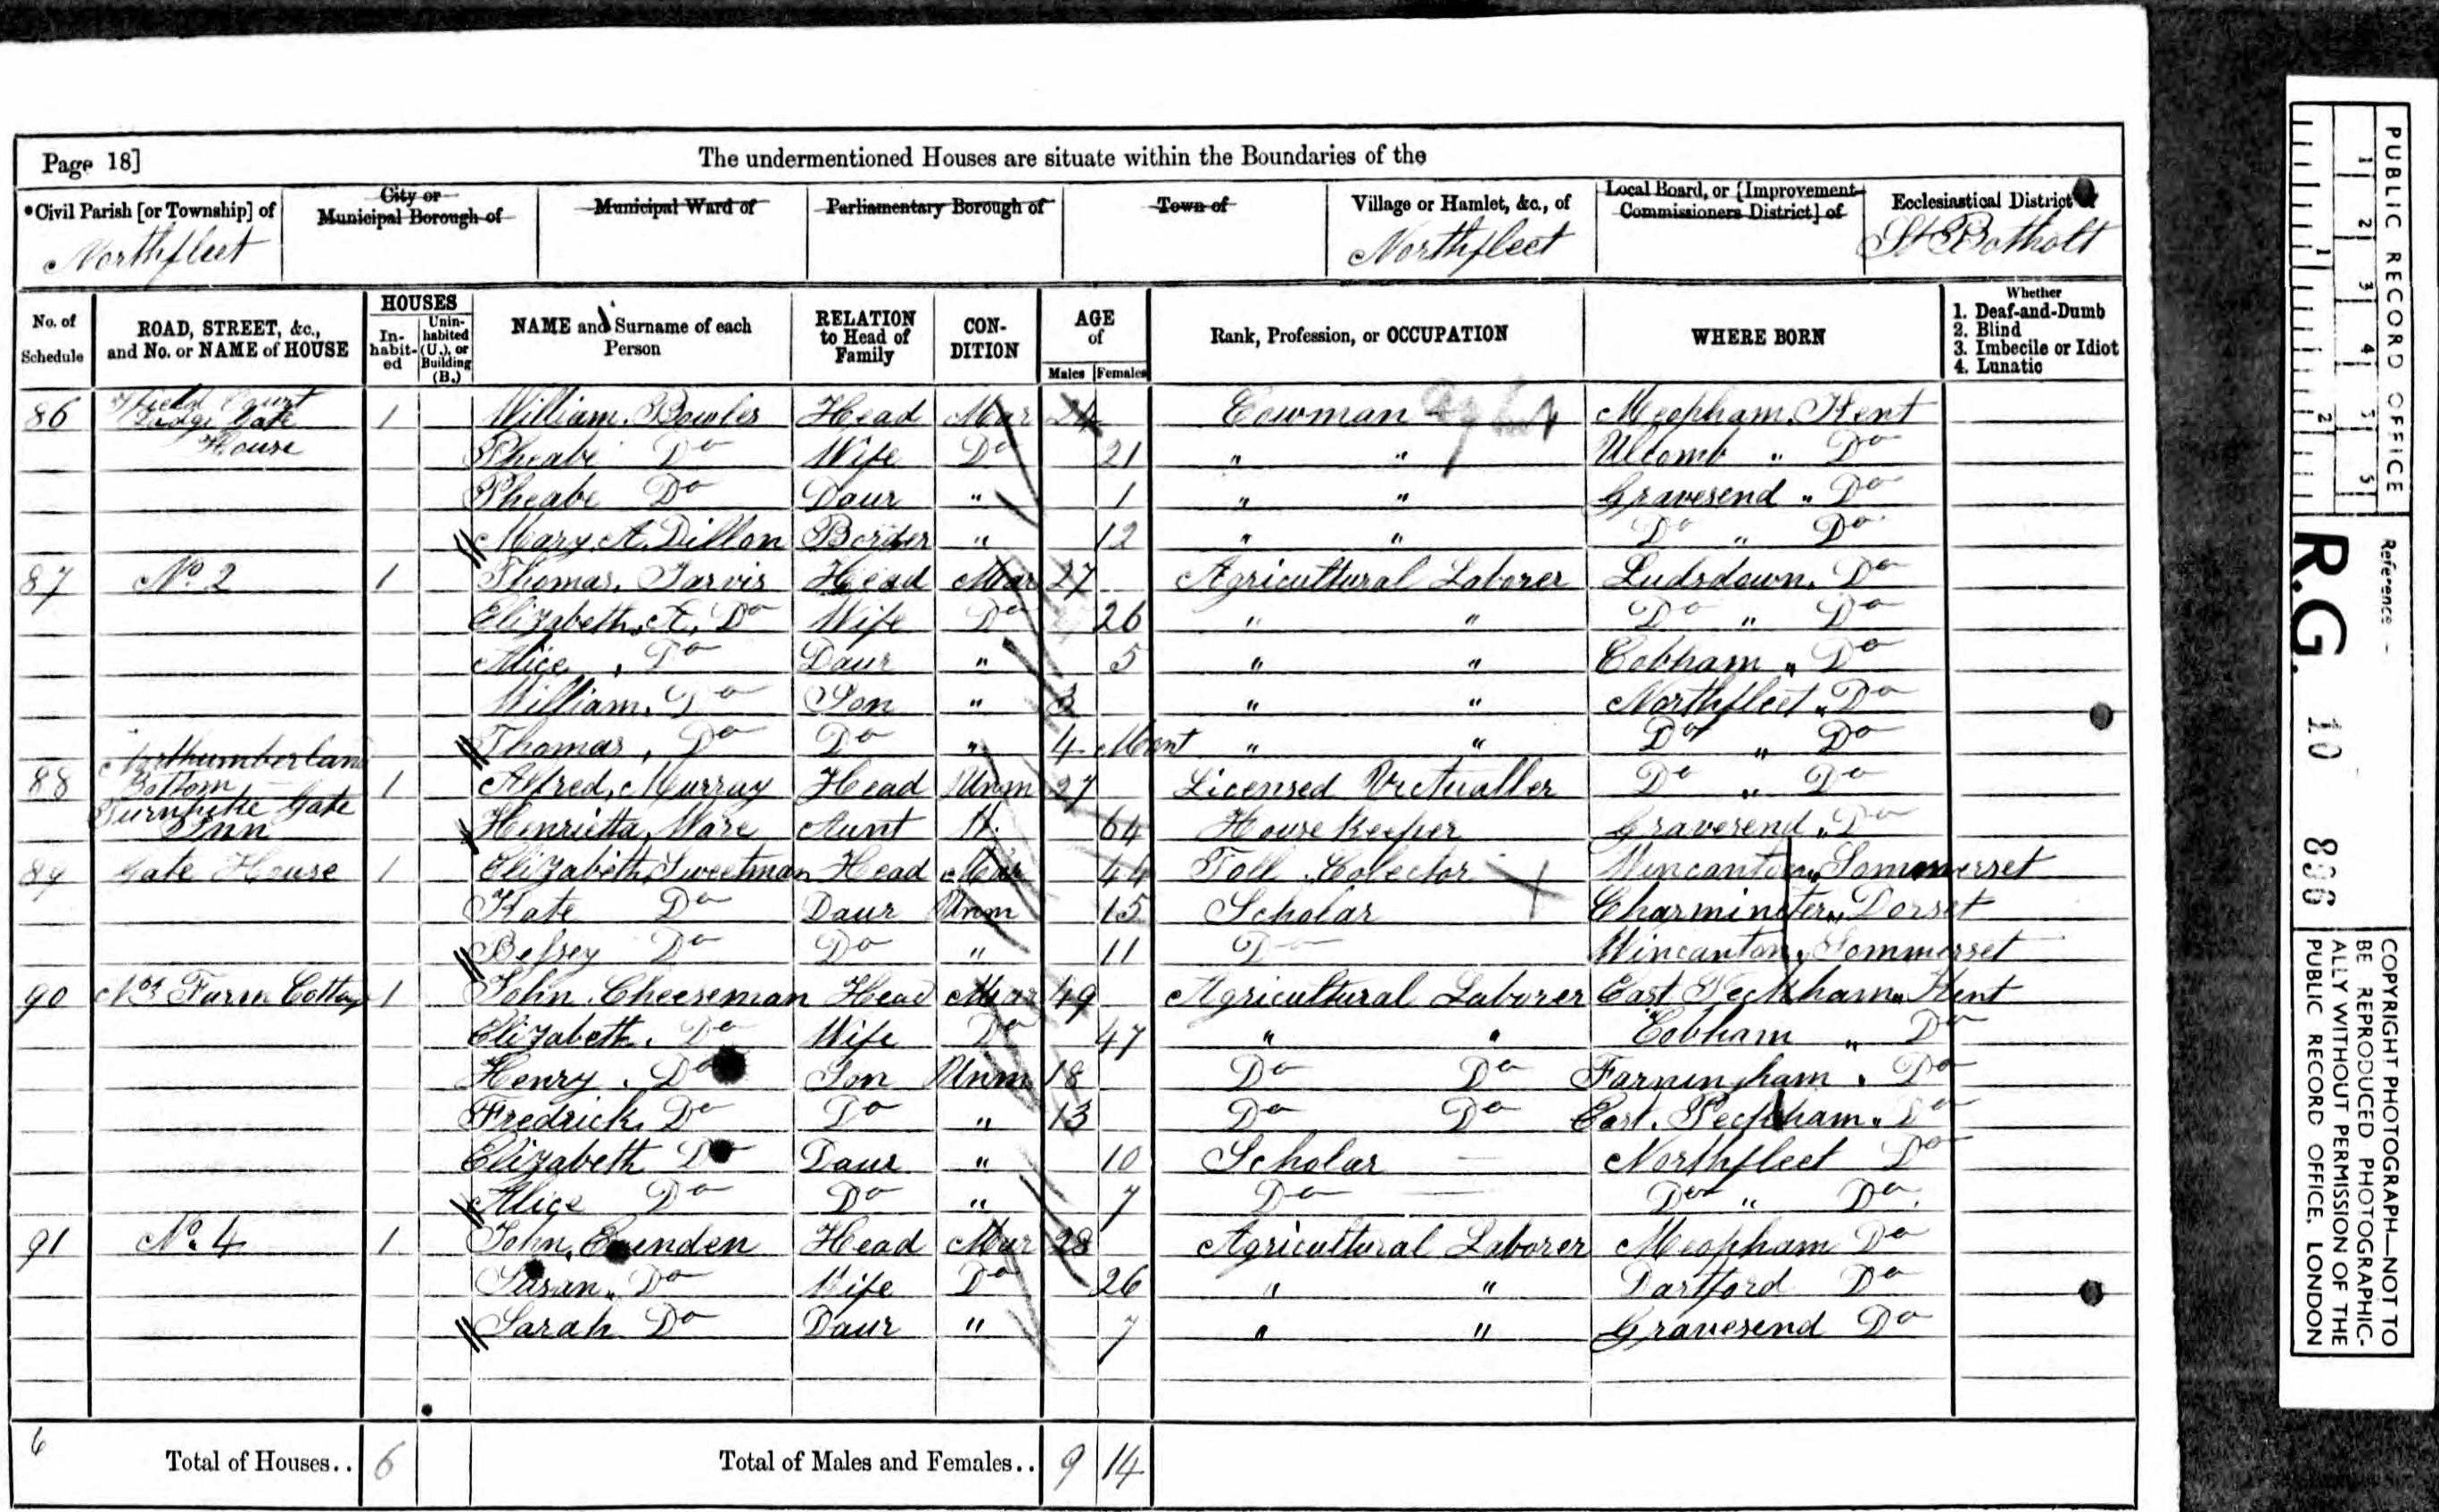 Page 18]
The undermentioned Houses are situate within the Boundaries of the
*Civil Parish [or Township] of
Northfleet
City or
Municipal Borough of
Municipal Ward of
Parliamentary Borough of
Town of
Village or Hamlet, &c., of
Northfleet
Local Board, or [Improvement
Commissioners District] of
Ecclesiastical District
St Botholt
No. of Schedule ROAD, STREET, &c., and No. or NAME of HOUSE HOUSES In-habit-ed Unin-habited (U.), or Building (B.) NAME and Surname of each Person RELATION to Head of Family CON-DITION AGE of Males Females Rank, Profession, or OCCUPATION WHERE BORN Whether 1. Deaf-and-Dumb 2. Blind 3. Imbecile or Idiot 4. Lunatic
86 Ifield Court Lodge Gate House 1 William. Bowles Head Mar 24 Cowman Meopham. Kent
Pheabe Do Wife Do 21 " " Ulcomb " Do
Pheabe Do Daur " 1 " " Gravesend " Do
Mary. A. Dillon Border " 12 " " Do " Do
87 No. 2 1 Thomas. Jarvis Head Mar 27 Agricultural Laborer Ludsdown. Do
Elizabeth. A. Do Wife Do 26 " " Do " Do
Alice , Do Daur " 5 " " Cobham " Do
William. Do Son " 3 " " Northfleet " Do
Thomas, Do Do " 4 Mont " " Do " Do
88 Northumberland Bottom Turnpike Gate Inn 1 Alfred, Murray Head Unm 27 Licensed Victualler Do " Do
Henrietta. Ware Aunt 64 House Keeper Gravesend " Do
89 Gate House 1 Elizabeth Sweetman Head Mar 44 Toll Colector Wincanton Sommerset
Kate Do Daur Unm 15 Scholar Charminster " Dorset
Bessey Do Do " 11 Do Wincanton. Sommerset
90 No 3 Farm Cottag 1 John. Cheeseman Head Mar 49 Agricultural Laborer East Peckham " Kent
Elizabeth. Do Wife Do 47 " " Cobham " Do
Henry. Do Son Unm 18 Do Do Farningham. Do
Fredrick. Do Do " 13 Do Do East. Peckham. Do
Elizabeth Do Daur " 10 Scholar Northfleet Do
Alice Do Do " 7 Do Do " Do
91 No. 4 1 John. Head Mar 28 Agricultural Laborer Meopham Do
Susan. Do Wife Do 26 " " Dartford Do
Sarah Do Daur " 7 " " Gravesend Do
6 Total of Houses.. 6 Total of Males and Females.. 9 14
PUBLIC RECORD OFFICE
1 2 3 4 5
1 2
Reference -
R.G. 10 896
COPYRIGHT PHOTOGRAPH—NOT TO
BE REPRODUCED PHOTOGRAPHIC-
ALLY WITHOUT PERMISSION OF THE
PUBLIC RECORD OFFICE, LONDON